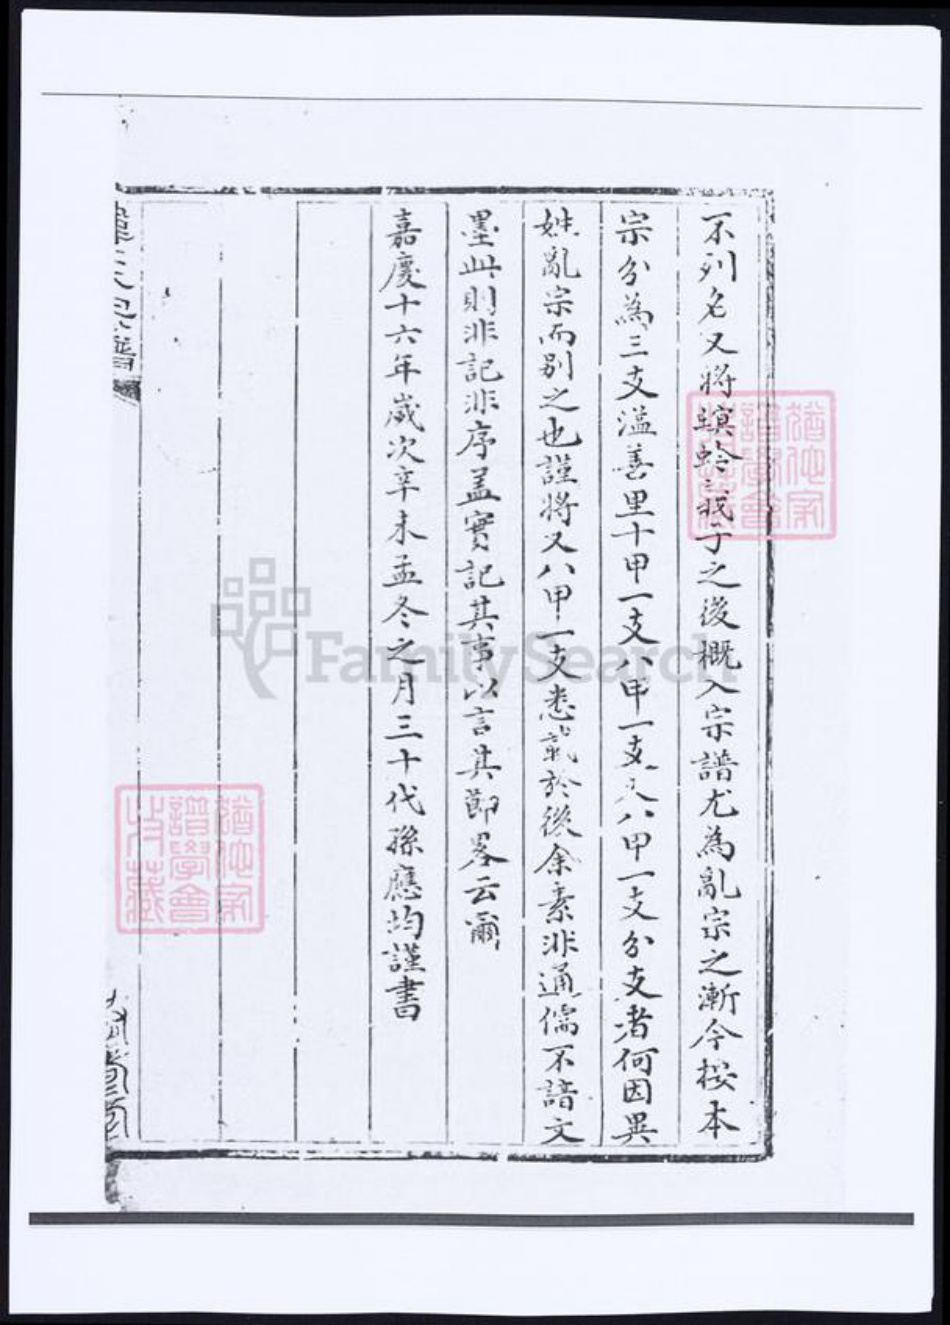 不列名又將螟蛉義子之後概入宗譜尤為亂宗之漸今按本
宗分為三支溢善里十甲一支八甲一支又八甲一支分支者何因異
姓亂宗而别之也謹將又八甲一支悉載於後余素非通儒不諳文
墨此則非記非序盖實記其事以言其節畧云爾
嘉慶十六年嵗次辛未孟冬之月三十代孫應均謹書
譜
FamilySearch
譜學會
譜學會
收藏